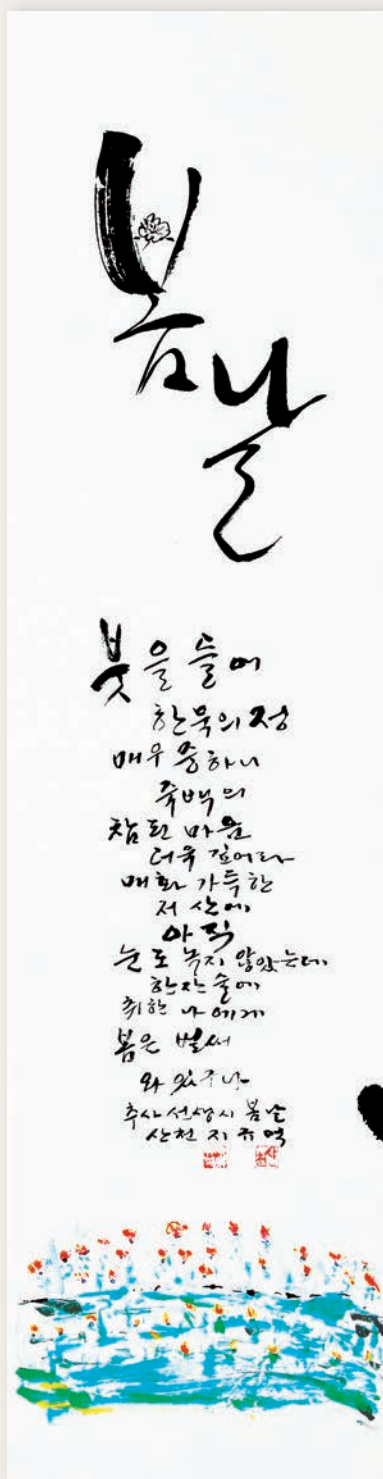 봄날
붓을 들어
한묵의 정
매우 중하니
죽백의
참된 마음
더욱 깊어라
매화 가득한
저 산에
아직
눈도 녹지 않았는데
한잔 술에
취한 나에게
봄은 벌써
와 있구나
추사선생시 봄날
산천 지